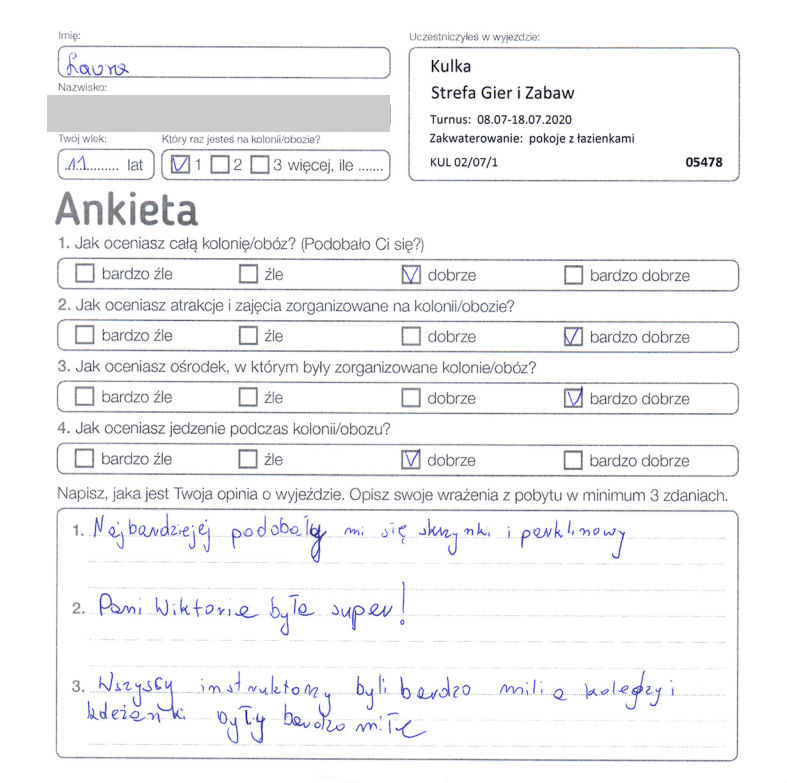 Imię:
Laura
Nazwisko:
Twój wiek: Który raz jesteś na kolonii/obozie?
11 lat 1 2 3 więcej, ile .......
Uczestniczyłeś w wyjeździe:
Kulka
Strefa Gier i Zabaw
Turnus: 08.07-18.07.2020
Zakwaterowanie: pokoje z łazienkami
KUL 02/07/1 05478
Ankieta
1. Jak oceniasz całą kolonię/obóz? (Podobało Ci się?)
bardzo źle źle dobrze bardzo dobrze
2. Jak oceniasz atrakcje i zajęcia zorganizowane na kolonii/obozie?
bardzo źle źle dobrze bardzo dobrze
3. Jak oceniasz ośrodek, w którym były zorganizowane kolonie/obóz?
bardzo źle źle dobrze bardzo dobrze
4. Jak oceniasz jedzenie podczas kolonii/obozu?
bardzo źle źle dobrze bardzo dobrze
Napisz, jaka jest Twoja opinia o wyjeździe. Opisz swoje wrażenia z pobytu w minimum 3 zdaniach.
1. Najbardziejej podobały mi się skrzynki i park linowy
2. Pani Wiktoria była super!
3. Wszyscy instruktorzy byli bardzo mili a koledzy i
koleżanki były bardzo miłe